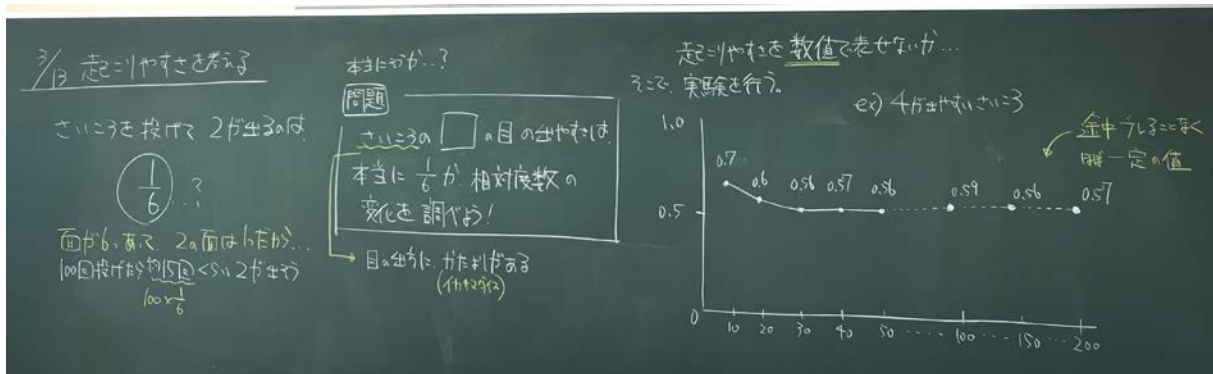 3/13 起こりやすさを考える
さいころを投げて 2が出るのは
1/6 …?
面が6つあって 2の面は1つだから…
100回投げたら約15回くらい2が出そう
100×1/6
本当にそうか…?
問題
さいころの□の目の出やすさは
本当に1/6か 相対度数の
変化を調べよう!
目の出方に かたよりがある
(イカサマダイス)
起こりやすさを数値で表せないか…
そこで 実験を行う。
ex) 4が出やすいさいころ
途中
ほぼ一定の値
1.0
0.7 0.6 0.56 0.57 0.56 0.59 0.56 0.57
0.5
0 10 20 30 40 50 ‥‥ 100 ‥‥ 150 ‥‥ 200